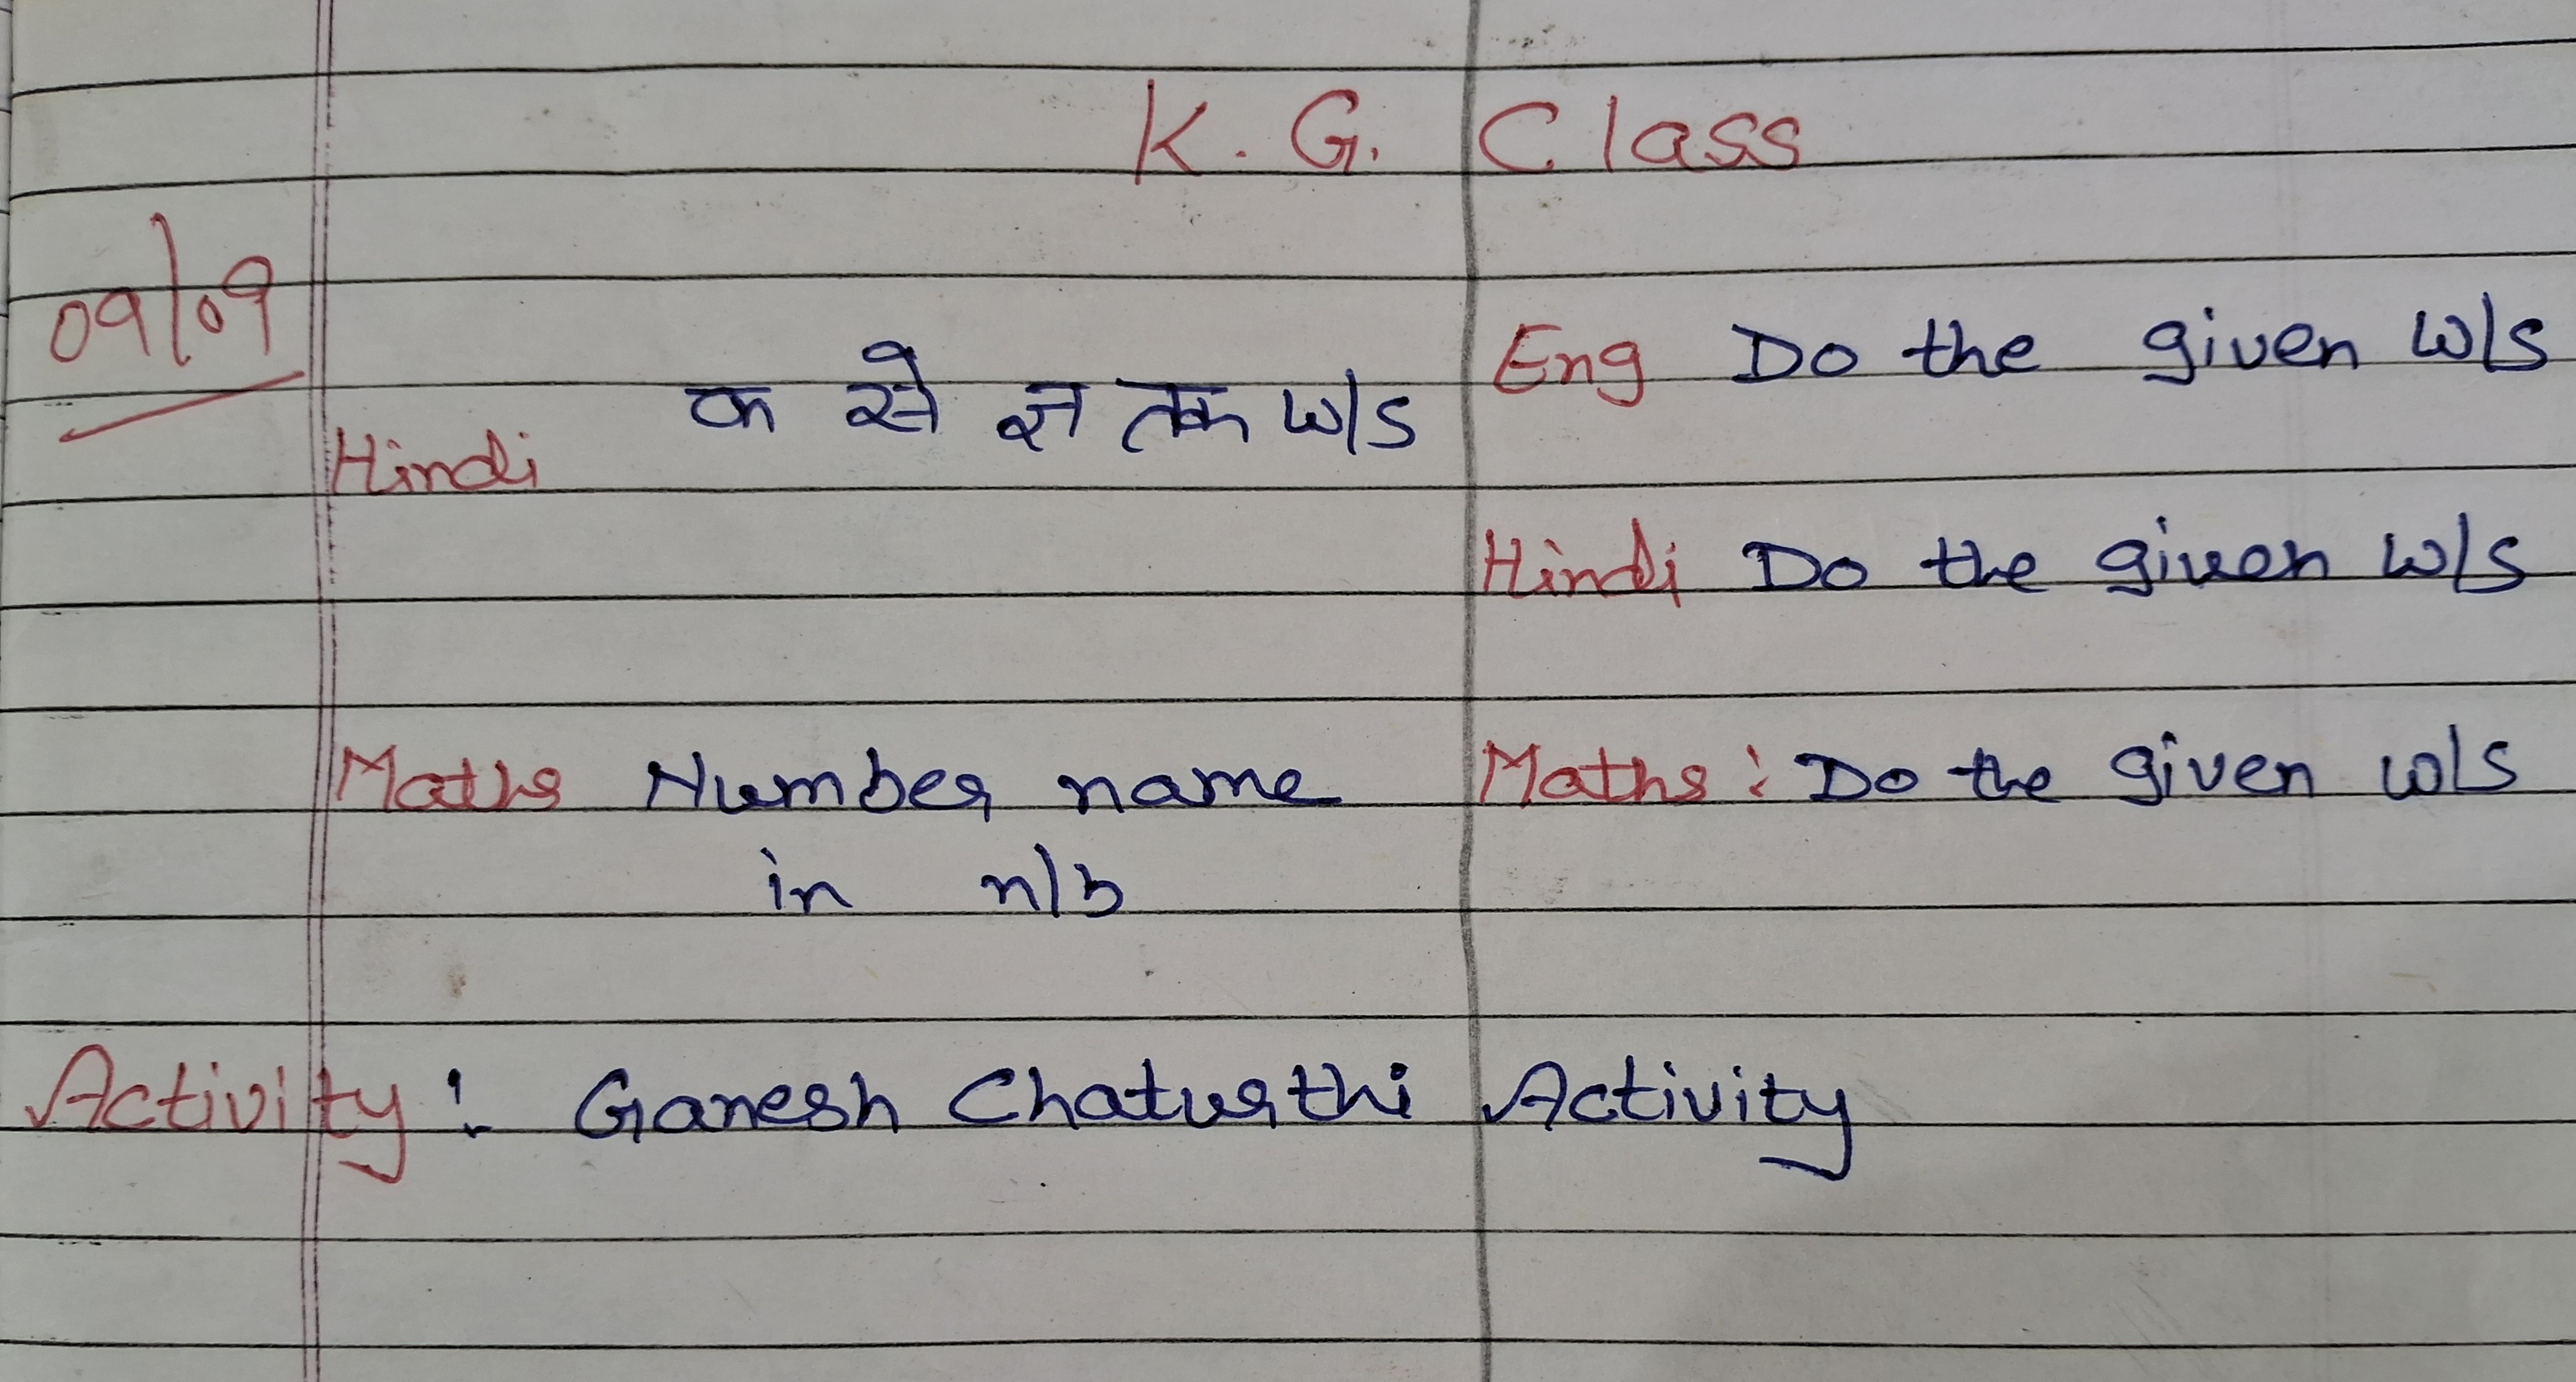 K. G. Class
09/09
Hindi क से ज्ञ तक w/s
Maths Number name
in n/b
Eng Do the given w/s
Hindi Do the given w/s
Maths : Do the given w/s
Activity : Ganesh Chaturthi Activity